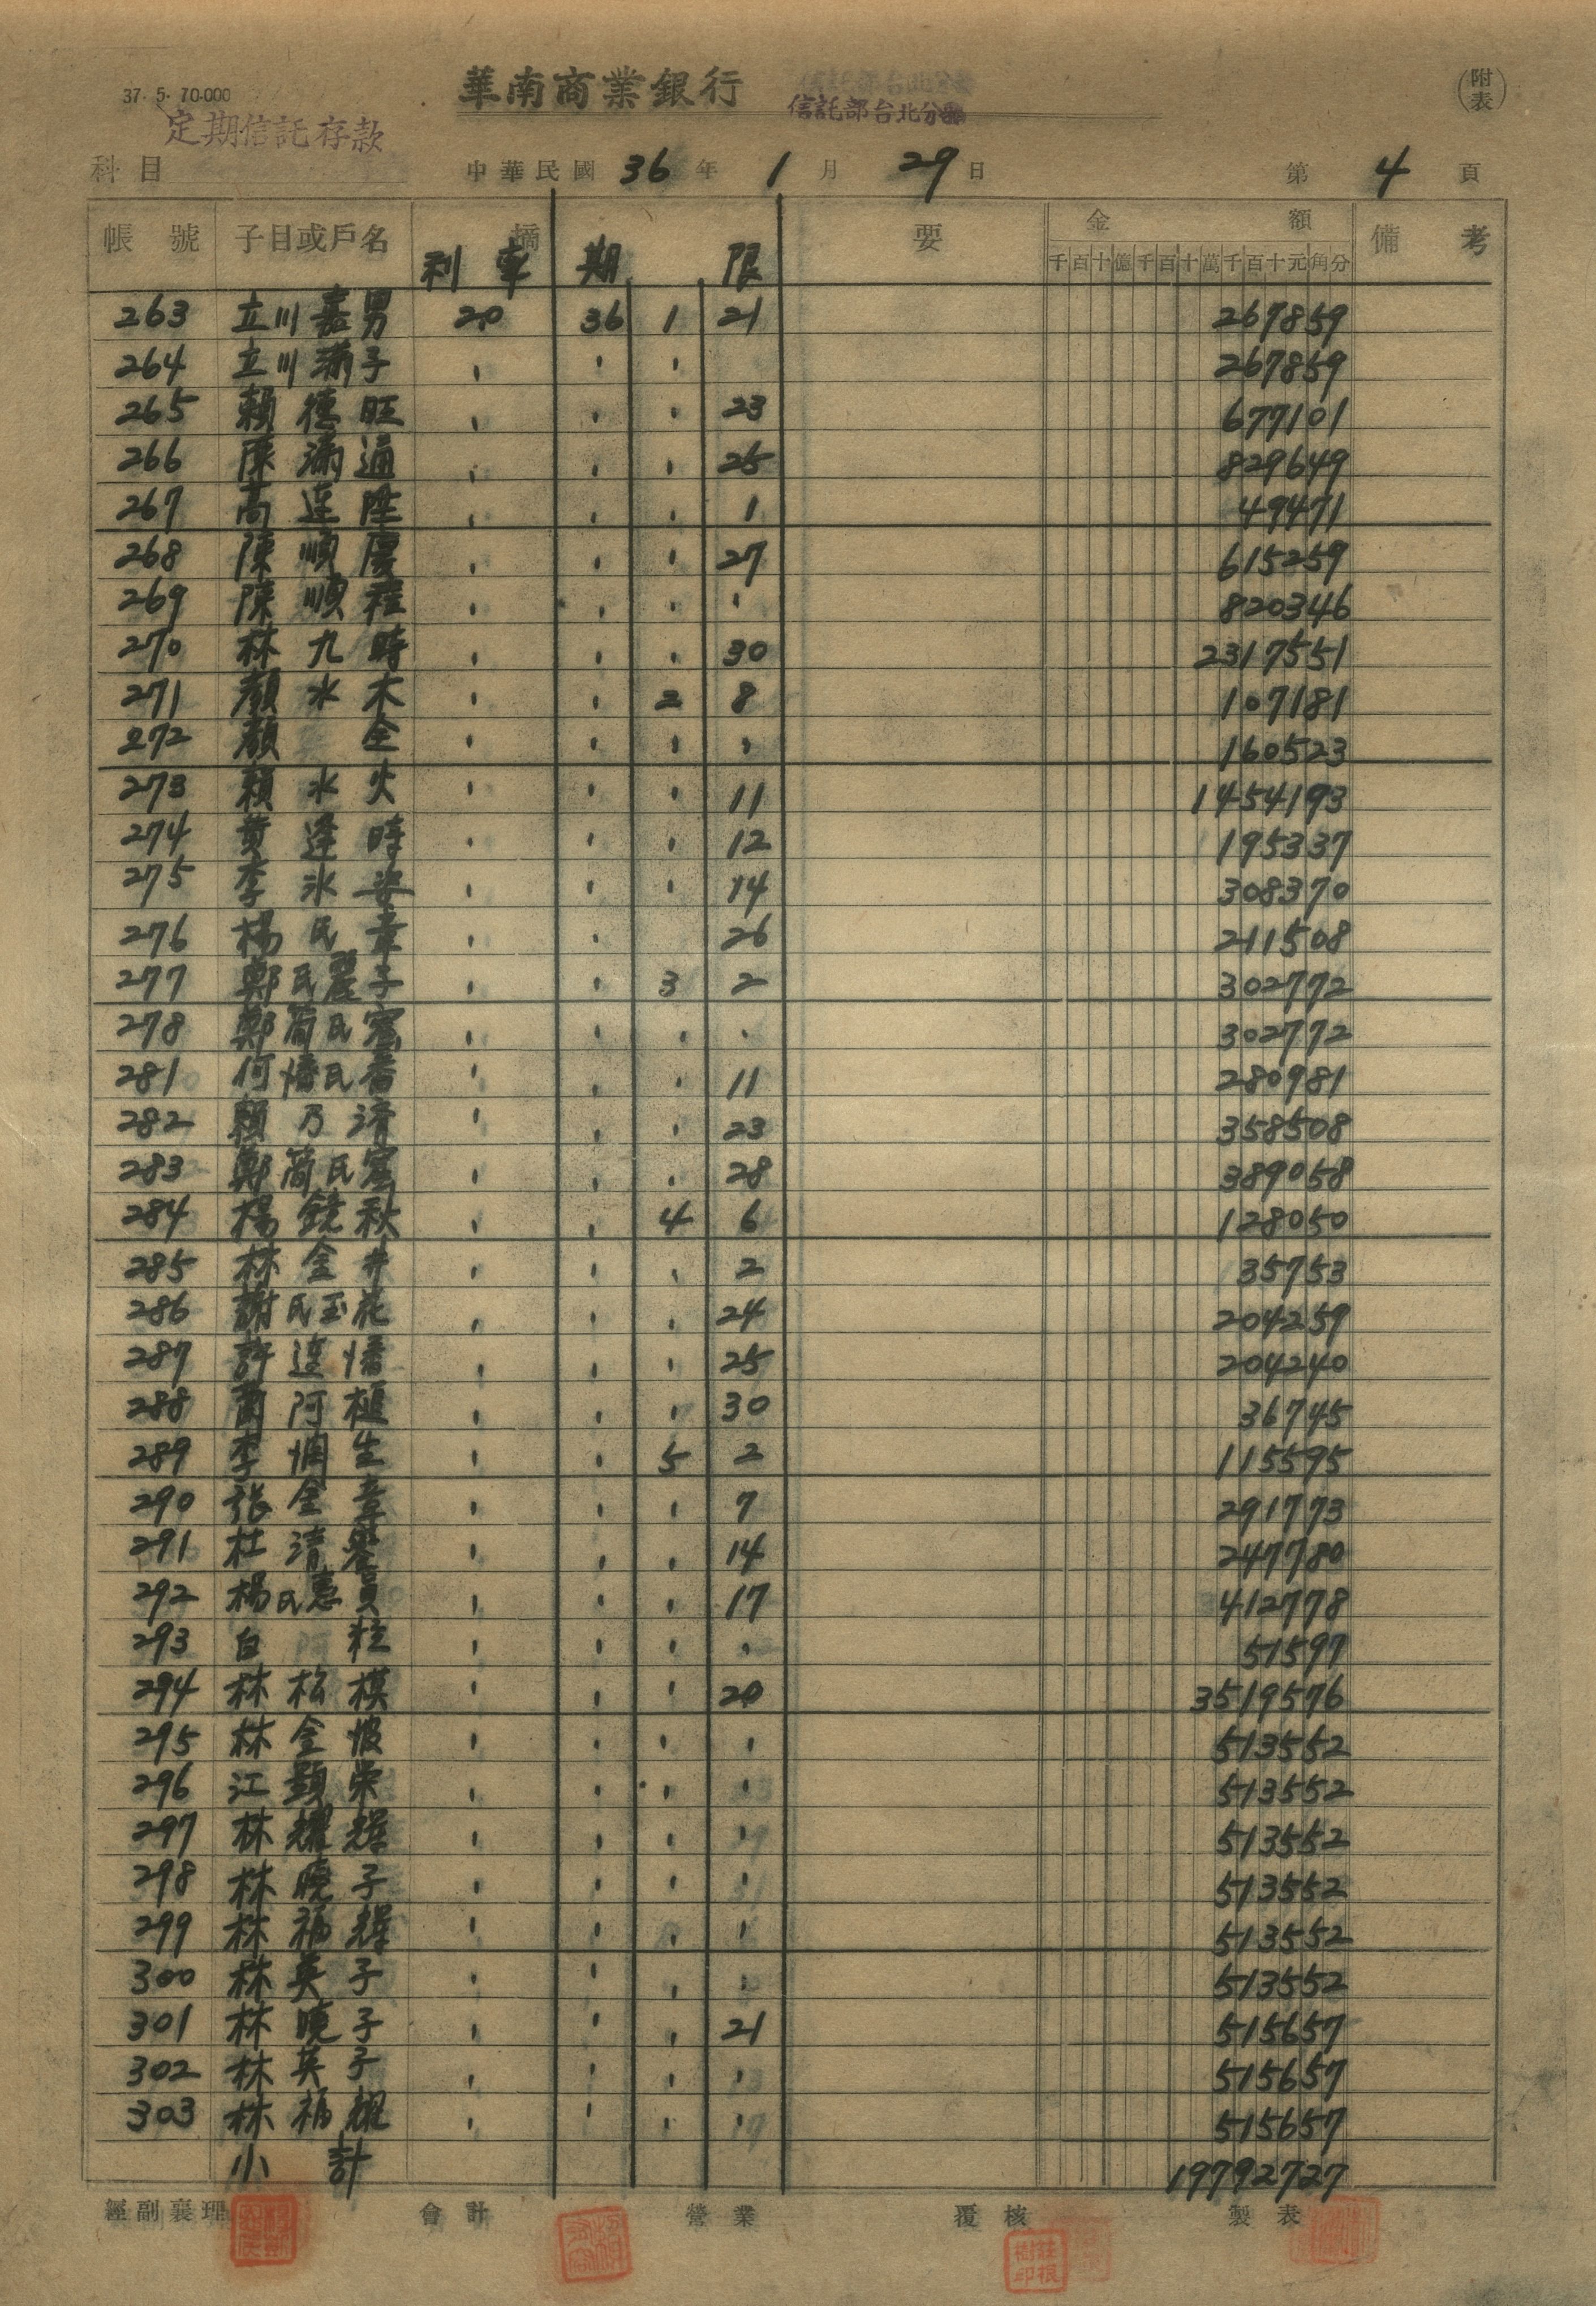 37. 5. 70.000
華南商業銀行 信託部台北分部
(附表)
定期信託存款
科目 中華民國 36 年 1 月 29 日 第 4 頁
帳號 子目或戶名 摘 要 金 額 備考
利率 期 限 千百十億千百十萬千百十元角分
263 立川嘉男 20 36 1 21 267859
264 立川滿子 〃 〃 〃 267859
265 賴德旺 〃 〃 〃 23 677101
266 陳滿通 〃 〃 〃 25 829649
267 高連陞 〃 〃 〃 1 49471
268 陳順慶 〃 〃 〃 27 615259
269 陳順 〃 〃 〃 〃 820346
270 林九時 〃 〃 〃 30 2317551
271 顏水木 〃 〃 2 8 107181
272 顏 全 〃 〃 〃 〃 160523
273 賴水火 〃 〃 〃 11 1454193
274 黃逢時 〃 〃 〃 12 195337
275 李氷姿 〃 〃 〃 14 308370
276 楊民章 〃 〃 26 211508
277 鄭氏麗子 〃 〃 3 2 302772
278 鄭簡氏 〃 〃 〃 〃 302772
281 何潘氏香 〃 〃 〃 11 280981
282 賴乃清 〃 〃 〃 23 358508
283 鄭簡氏 〃 〃 〃 28 389058
284 楊鏡秋 〃 〃 4 6 128050
285 林金井 〃 〃 〃 2 35753
286 謝氏玉花 〃 〃 〃 24 204259
287 許連 〃 〃 〃 25 204240
288 阿 〃 〃 〃 30 36745
289 李 生 〃 〃 5 2 115595
290 張金章 〃 〃 〃 7 291773
291 杜清 〃 〃 〃 14 247780
292 楊氏惠 〃 〃 〃 17 412778
293 白 〃 〃 〃 〃 51597
294 林松棋 〃 〃 〃 20 3519576
295 林金 〃 〃 〃 〃 513552
296 江顯榮 〃 〃 〃 〃 513552
297 林耀輝 〃 〃 〃 〃 513552
298 林曉子 〃 〃 〃 〃 513552
299 林福輝 〃 〃 〃 〃 513552
300 林英子 〃 〃 〃 〃 513552
301 林曉子 〃 〃 〃 21 515657
302 林英子 〃 〃 〃 〃 515657
303 林福耀 〃 〃 〃 〃 515657
小計 19792727
經副襄理 會計 營業 覆核 製表